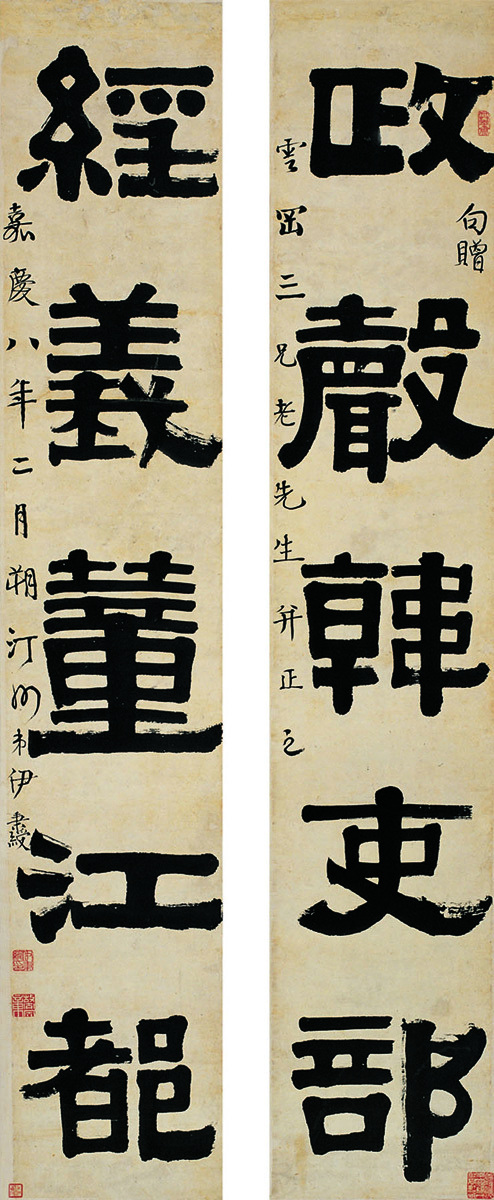 政聲韓吏部
句贈
雲岡三兄老先生并正之
經義董江都
嘉慶八年二月朔汀州弟伊秉綬